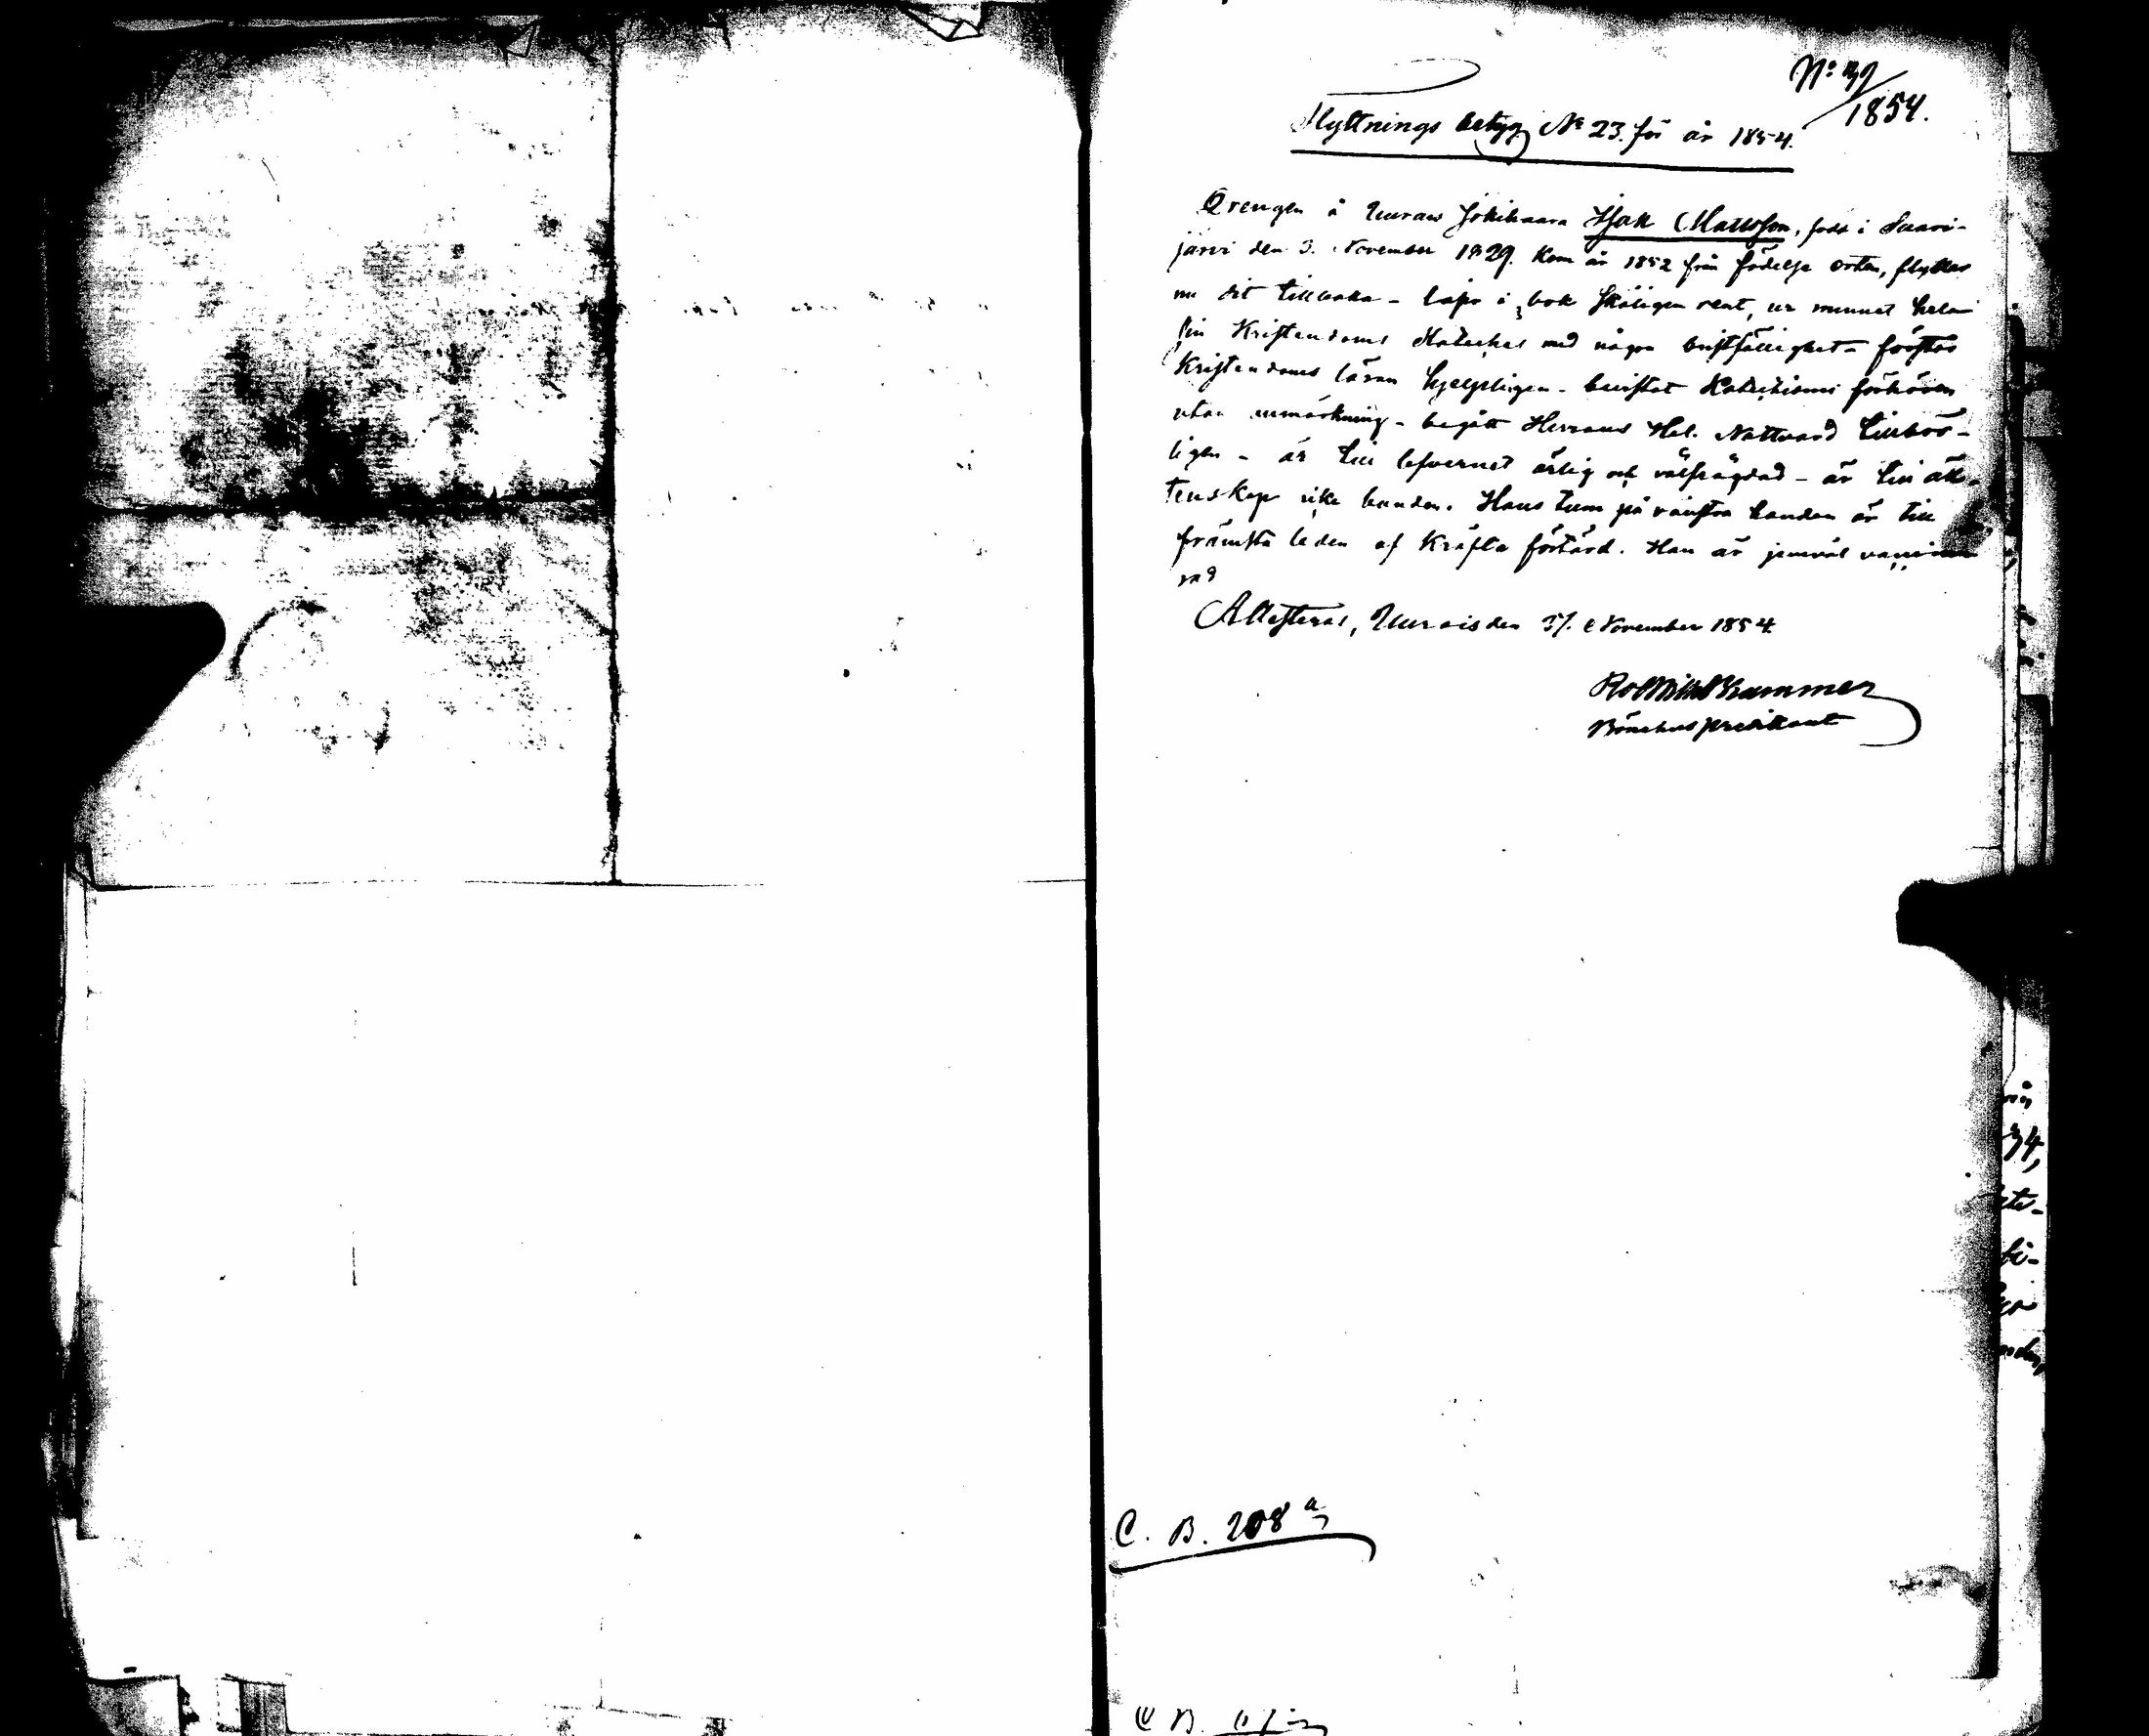 No 39/1854.
Flyttnings betyg No 23. för år 1854.
Drengen å Uurais Jokihaara Isak Mattsson, född i Saari-
järvi den 3. November 1829. Kom år 1852 från födelse orten, flyttar
nu dit tillbaka – läser i bok skäligen rent, ur minnet hela
sin Kristendoms Kateches med någon bristfällighet – förstår
Kristendoms läran hjelpligen – bevistat Katechismi förhören
utan anmärkning – begått Herrans Hel. Nattvard tillbör-
ligen – är till lefvernet ärlig och välfrägdad – är till äk-
tenskap icke bunden. Hans tum på vänstra handen är till
främsta leden af Kräfta förtärd. Han är jemväl vaccine-
rad
Attesteras, Uurais den November 1854.
Bönehuspredikant
C. B. 208 a
C B
34,